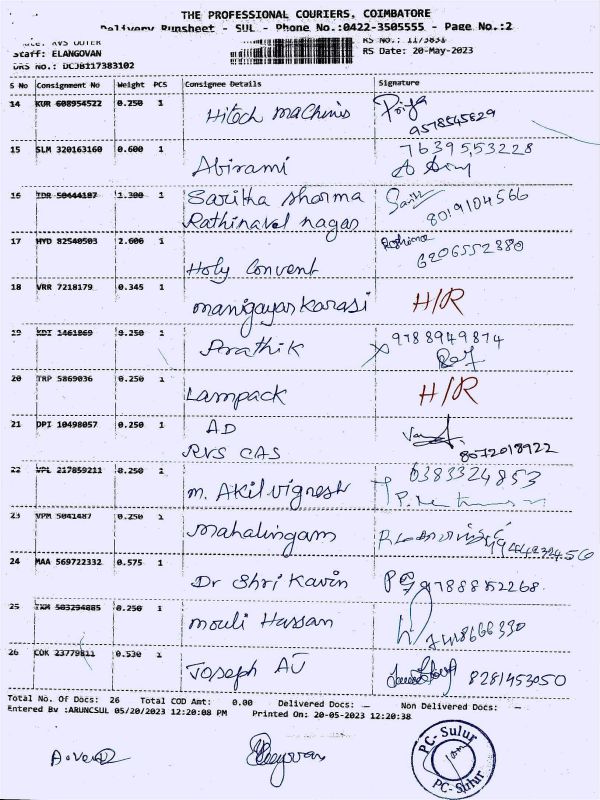 THE PROFESSIONAL COURIERS, COIMBATORE
Delivery Runsheet - SUL - Phone No.:0422-3505555 - Page No.:2
RVS OUTER RS No.: 1173831
Staff: ELANGOVAN RS Date: 20-May-2023
DRS No.: DCJB117383102
S No Consignment No Weight PCS Consignee Details Signature
14 KUR 608954522 0.250 1 Hitech machinis Priya
9578545829
15 SLM 320163160 0.600 1 Abirami 7639553228
16 TDR 50444187 1.300 1 Saritha sharma
Rathinavel nagar 8019104566
17 HYD 82540503 2.600 1 Holy Convent Roshima
6206552380
18 VRR 7218179 0.345 1 manigayarkarasi H/R
19 KDI 1461869 0.250 1 Prathik 9788949874
20 TRP 5869036 0.250 1 Lampack H/R
21 DPI 10498057 0.250 1 AD
RVS CAS 8072018922
22 VPL 217859211 0.250 1 m. Akil vignesh 6383324853
23 VPM 5041487 0.250 1 mahalingam
24 MAA 569722332 0.575 1 Dr Shri Kavin 9788852268
25 TKM 503294885 0.250 1 mouli Hassan
26 COK 23779811 0.530 1 Joseph AJ 8281453050
Total No. Of Docs: 26 Total COD Amt: 0.00 Delivered Docs: — Non Delivered Docs: —
Entered By :ARUNCSUL 05/20/2023 12:20:08 PM Printed On: 20-05-2023 12:20:38
PC- Sulur
PC- Sulur